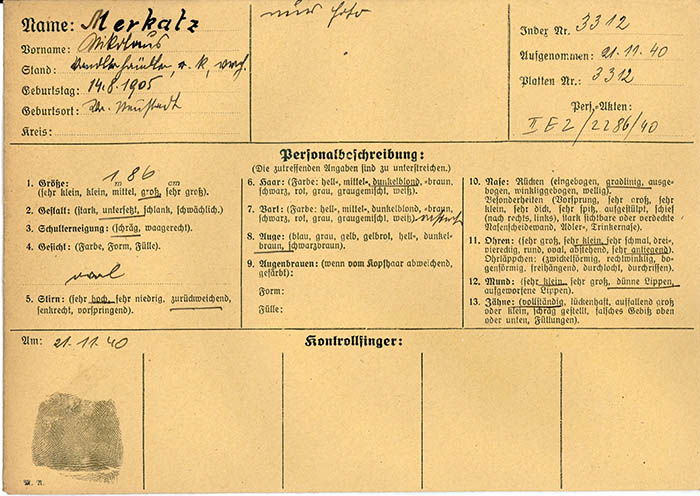 Name: Merkatz
Vorname: Nikolaus
Stand: r. k., verh.
Geburtstag: 14.8.1905
Geburtsort: Wr. Neustadt
Kreis:
nur Foto
Index Nr. 3312
Aufgenommen: 21.11.40
Platten Nr.: 3312
Pers.-Akten:
II E 2/2286/40
Personalbeschreibung:
(Die zutreffenden Angaben sind zu unterstreichen.)
1. Größe: 1 m 86 cm
(sehr klein, klein, mittel, groß, sehr groß).
2. Gestalt: (stark, untersetzt, schlank, schwächlich).
3. Schulterneigung: (schräg, waagerecht).
4. Gesicht: (Farbe, Form, Fülle).
oval
5. Stirn: (sehr hoch, sehr niedrig, zurückweichend,
senkrecht, vorspringend).
6. Haar: (Farbe: hell-, mittel-, dunkelblond, -braun,
schwarz, rot, grau, graugemischt, weiß).
7. Bart: (Farbe: hell-, mittel-, dunkelblond, -braun,
schwarz, rot, grau, graugemischt, weiß)
8. Auge: (blau, grau, gelb, gelbrot, hell-, dunkel-
braun, schwarzbraun).
9. Augenbrauen: (wenn vom Kopfhaar abweichend,
gefärbt):
Form:
Fülle:
10. Nase: Rücken (eingebogen, gradlinig, ausge-
bogen, winkliggebogen, wellig).
Besonderheiten (Vorsprung, sehr groß, sehr
klein, sehr dick, sehr spitz, aufgestülpt, schief
(nach rechts, links), stark sichtbare oder verdeckte
Nasenscheidewand, Adler-, Trinkernase).
11. Ohren: (sehr groß, sehr klein, sehr schmal, drei-
viereckig, rund, oval, abstehend, sehr anliegend).
Ohrläppchen: (zwickelförmig, rechtwinklig, bo-
genförmig, freihängend, durchlocht, durchrissen).
12. Mund: (sehr klein, sehr groß, dünne Lippen,
aufgeworfene Lippen).
13. Zähne: (vollständig, lückenhaft, auffallend groß
oder klein, schräg gestellt, falsches Gebiß oben
oder unten, Füllungen).
Am: 21.11.40
Kontrollfinger: